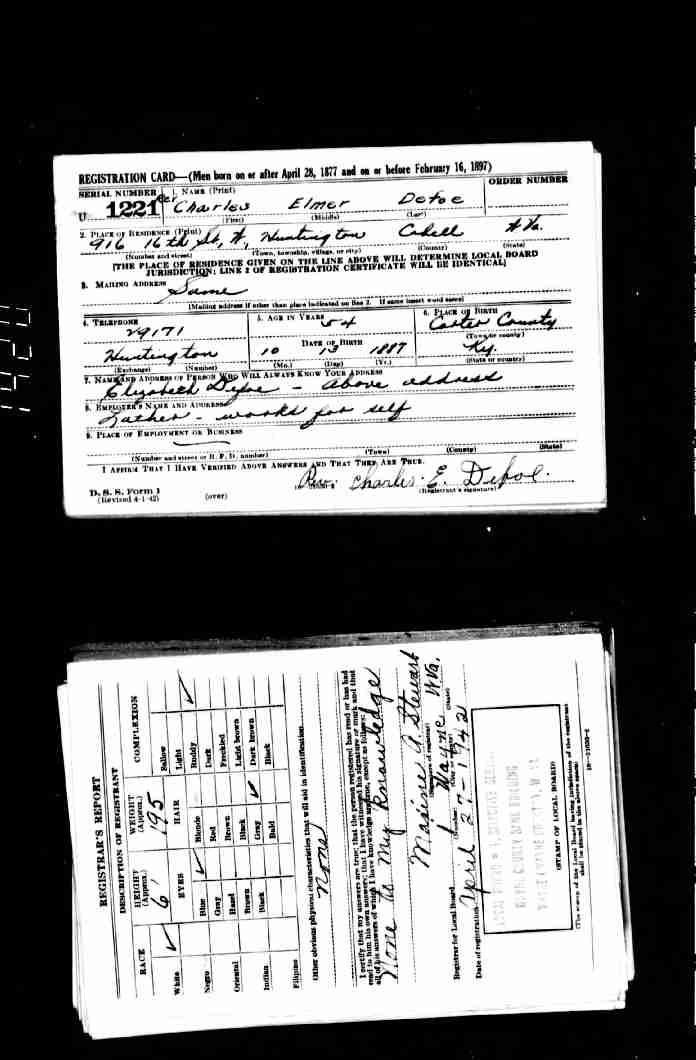 REGISTRATION CARD—(Men born on or after April 28, 1877 and on or before February 16, 1897)
SERIAL NUMBER 1. NAME (Print) ORDER NUMBER
U 1221 Charles Elmer Defoe
(First) (Middle) (Last)
2. PLACE OF RESIDENCE (Print)
916 16th St, W, Huntington Cabell W Va.
(Number and street) (Town, township, village, or city) (County) (State)
[THE PLACE OF RESIDENCE GIVEN ON THE LINE ABOVE WILL DETERMINE LOCAL BOARD
JURISDICTION; LINE 2 OF REGISTRATION CERTIFICATE WILL BE IDENTICAL]
3. MAILING ADDRESS
Same
[Mailing address if other than place indicated on line 2. If same insert word same]
4. TELEPHONE 5. AGE IN YEARS 6. PLACE OF BIRTH
29171 54 Carter County
DATE OF BIRTH (Town or county)
Huntington 10 13 1887 Ky.
(Exchange) (Number) (Mo.) (Day) (Yr.) (State or country)
7. NAME AND ADDRESS OF PERSON WHO WILL ALWAYS KNOW YOUR ADDRESS
Elizabeth Defoe - above address
8. EMPLOYER'S NAME AND ADDRESS
works for self
9. PLACE OF EMPLOYMENT OR BUSINESS
(Number and street or R. F. D. number) (Town) (County) (State)
I AFFIRM THAT I HAVE VERIFIED ABOVE ANSWERS AND THAT THEY ARE TRUE.
Rev. Charles E. Defoe.
D. S. S. Form 1
(Revised 4-1-42) (over) (Registrant's signature)
REGISTRAR'S REPORT
DESCRIPTION OF REGISTRANT
RACE HEIGHT (Approx.) WEIGHT (Approx.) COMPLEXION
6' 195
White ✓ EYES HAIR Sallow
Light ✓
Negro Blue ✓ Blonde Ruddy
Gray Red Dark
Oriental Hazel Brown Freckled
Brown Black Light brown
Indian Black Gray ✓ Dark brown
Bald Black
Filipino
Other obvious physical characteristics that will aid in identification
None
I certify that my answers are true; that the person registered has read or has had
read to him his own answers; that I have witnessed his signature or mark and that
all of his answers of which I have knowledge are true, except as follows:
None to my knowledge
Maxine A. Stewart
(Signature of registrar)
Registrar for Local Board 1 Wayne W Va.
(Number) (City or county) (State)
Date of registration April 27-1942
WAYNE COUNTY BANK BUILDING
(STAMP OF LOCAL BOARD)
(The stamp of the Local Board having jurisdiction of the registrant
shall be placed in the above space)